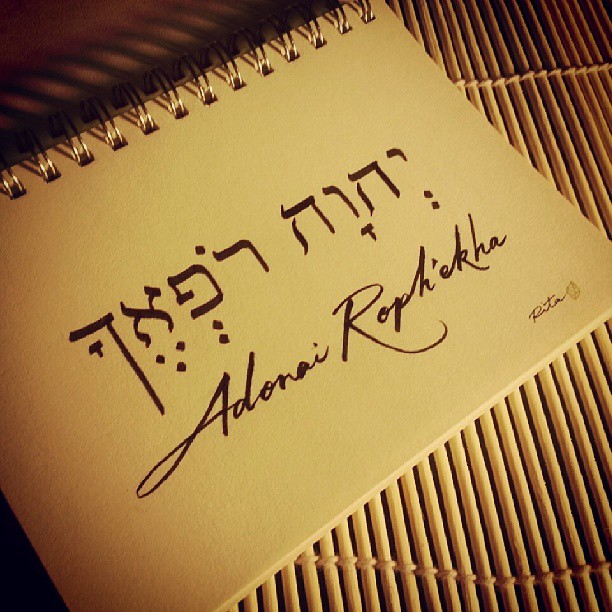 יְהוָה רֹפְאֶךָ
Adonai Roph'ekha
Rita